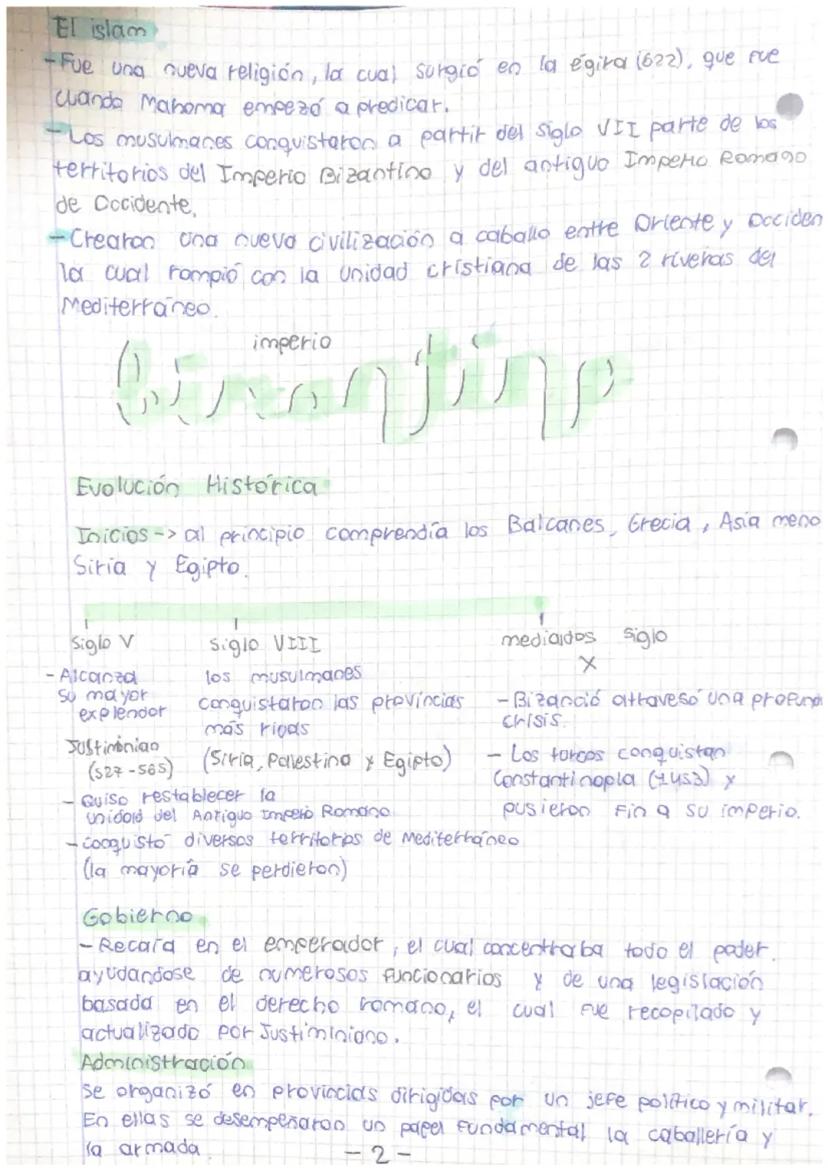 El islam
- Fue una nueva religión, la cual surgió en la égira (622), que fue
cuando Mahoma empezó a predicar.
- Los musulmanes conquistaron a partir del siglo VII parte de los
territorios del Imperio Bizantino y del antiguo Imperio Romano
de Occidente.
- Crearon una nueva civilización a caballo entre Oriente y Occiden
la cual rompió con la unidad cristiana de las 2 riveras del
Mediterráneo.
imperio
bizantino
Evolución Histórica
Inicios -> al principio comprendía los Balcanes, Grecia, Asia meno
Siria y Egipto.
Siglo V siglo VIII mediados siglo
X
- Alcanza los musulmanes
su mayor conquistaron las provincias - Bizanció attravesó una profun
explendor más ricas crisis.
Justiniano (Siria, Palestina y Egipto) - Los turcos conquistan
(527-565) Constantinopla (1453) y
- Quiso restablecer la pusieron fin a su imperio.
unidad del Antiguo Imperio Romano
- conquistó diversos territorios de Mediterráneo
(la mayoría se perdieron)
Gobierno
- Recaía en el emperador, el cual concentraba todo el poder.
ayudandose de numerosos funcionarios y de una legislación
basada en el derecho romano, el cual fue recopilado y
actualizado por Justiminiano.
Administración
se organizó en provincias dirigidas por un jefe político y militar.
En ellas se desempeñaron un papel fundamental la caballería y
la armada
- 2 -